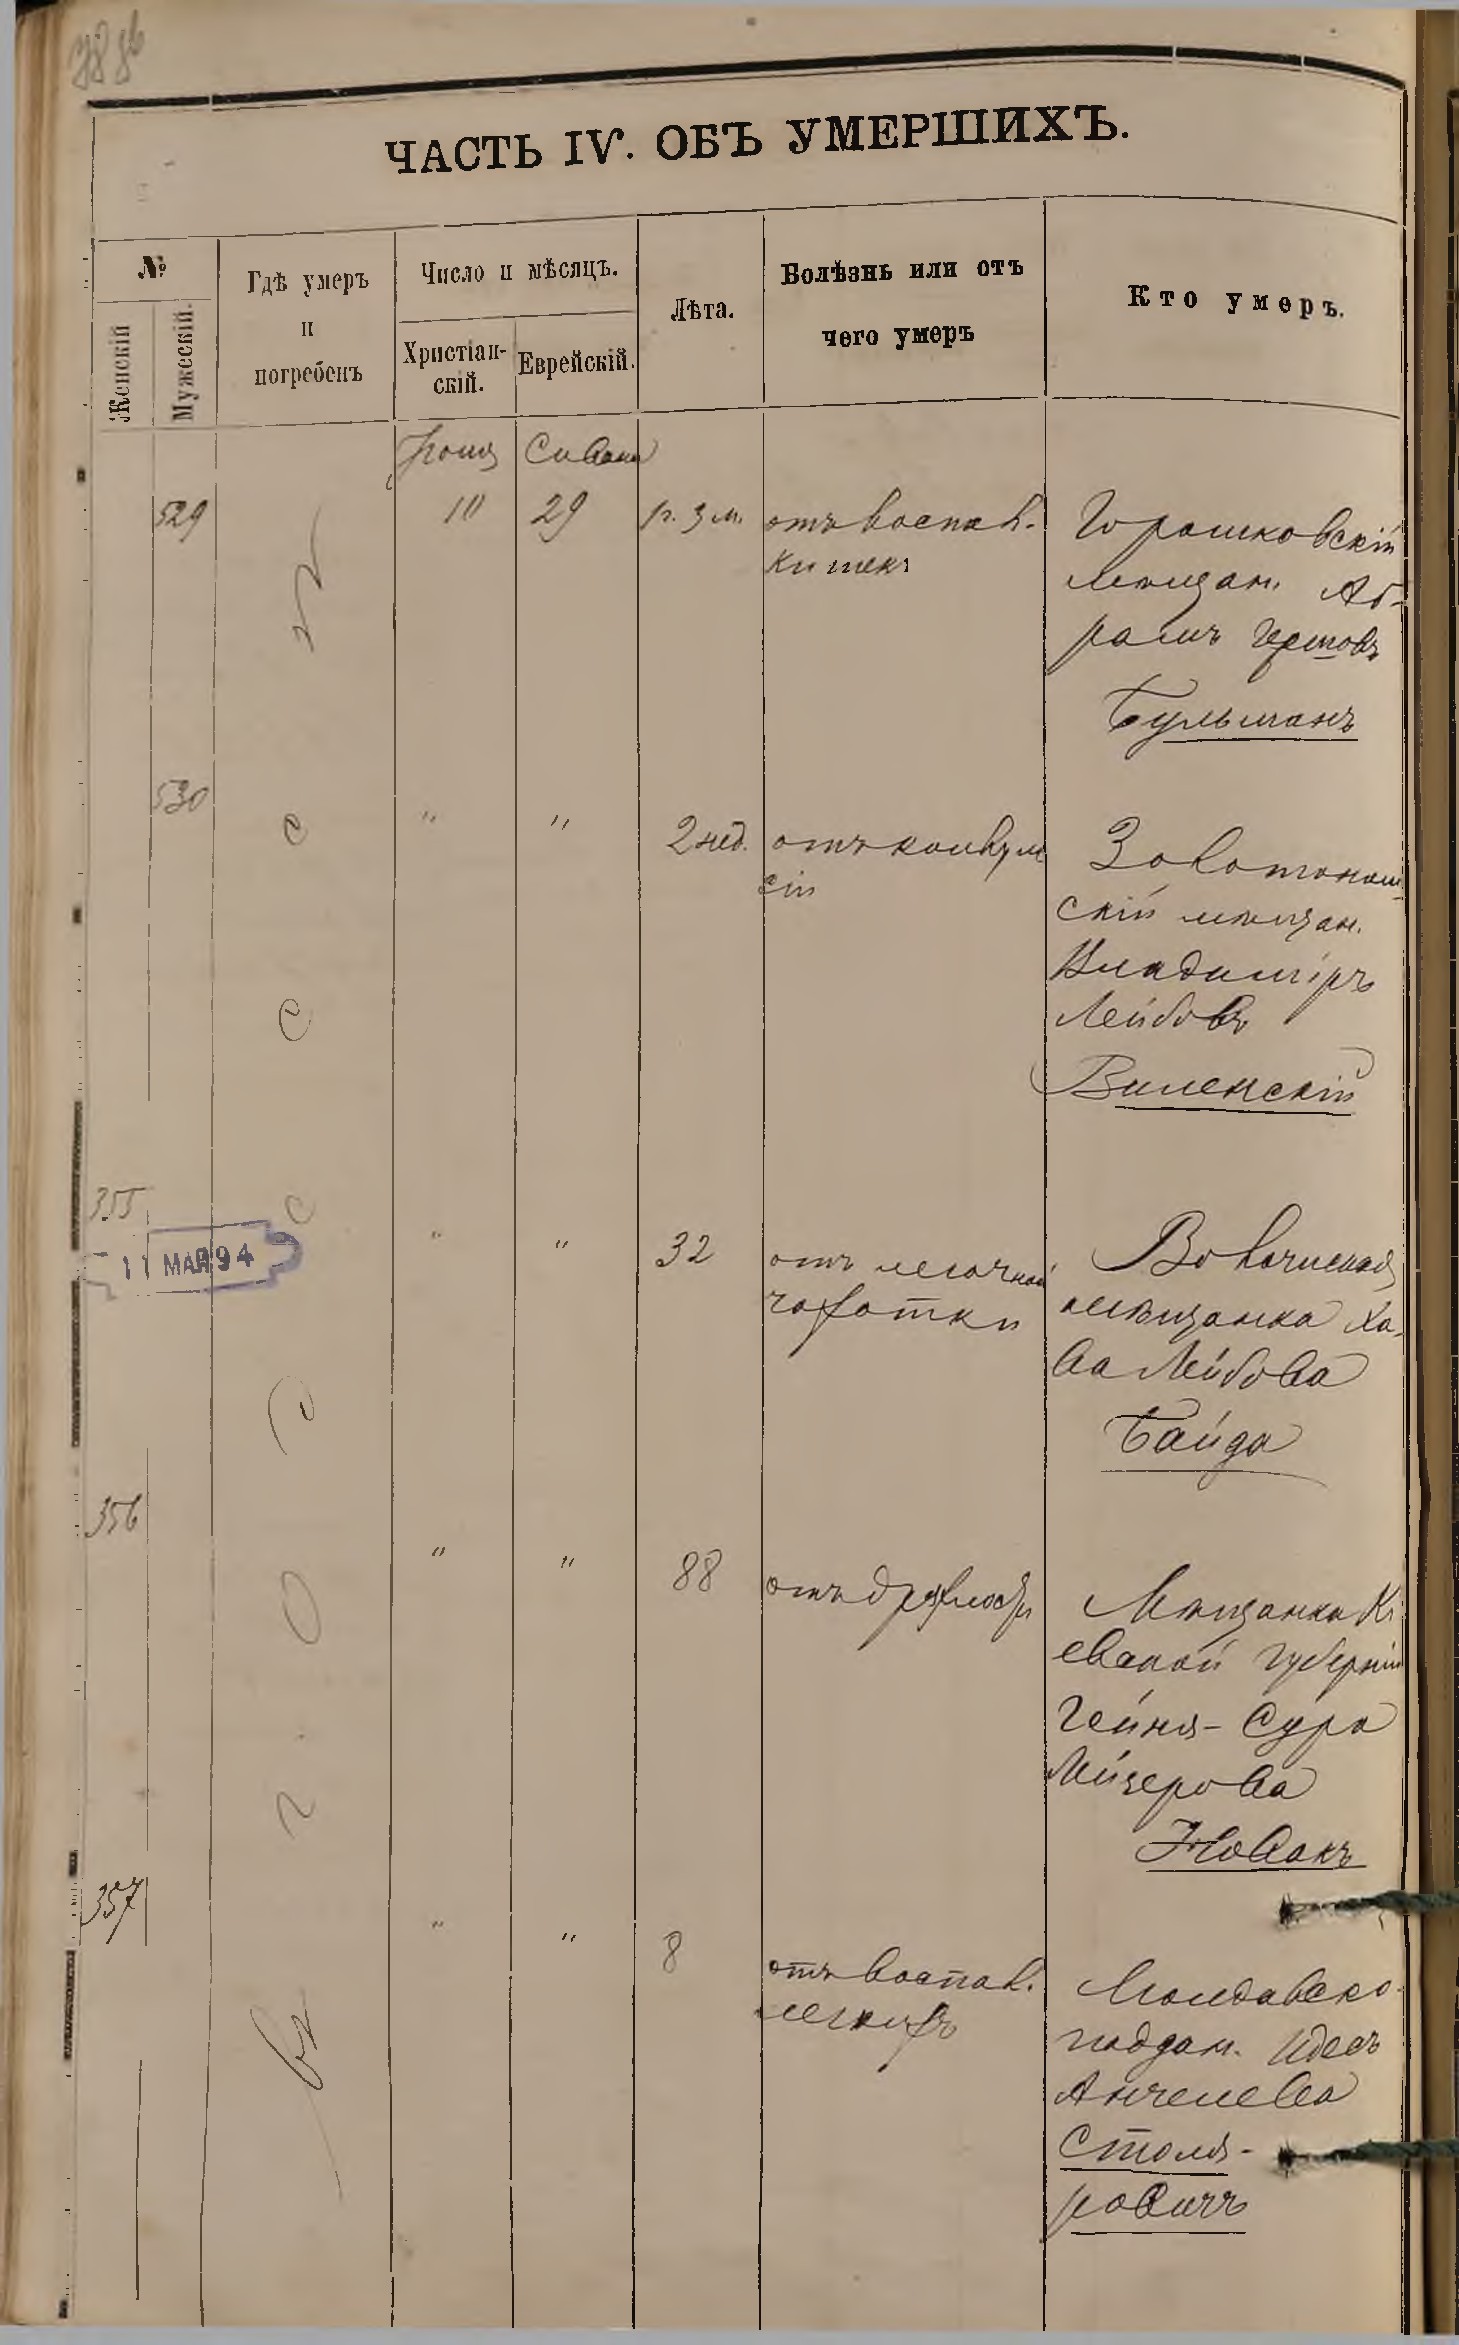 ЧАСТЬ IV. ОБЪ УМЕРШИХЪ.
№
Женскій
Мужескій.
Гдѣ умеръ
и
погребенъ
Число и мѣсяцъ.
Христіан-
скій.
Еврейскій.
Лѣта.
Болѣзнь или отъ
чего умеръ
Кто умеръ.
Въ г. Одессѣ
Іюня Сивана
529 10 29 1 г. 3 м. отъ воспал.
кишекъ
Горошковскій
мѣщан. Аб-
рамъ Гершовъ
Бульманъ
530 " " 2 нед. отъ конвуль
сій
Золотонош
скій мѣщан.
Владиміръ
Лейбовъ
Виленскій
355 " " 32 отъ легочной
чахотки
11 МАЯ 94
мѣщанка Ха-
ва Лейбова
Байда
356 " " 88 отъ дряхлости
Мѣщанка Кі
евской губерніи
Гейня-Сура
Мейерова
Новакъ
357 " " 8 отъ воспал.
легкихъ
Молдавско-
поддан. Идесъ
Анчелева
Столя-
ровичъ